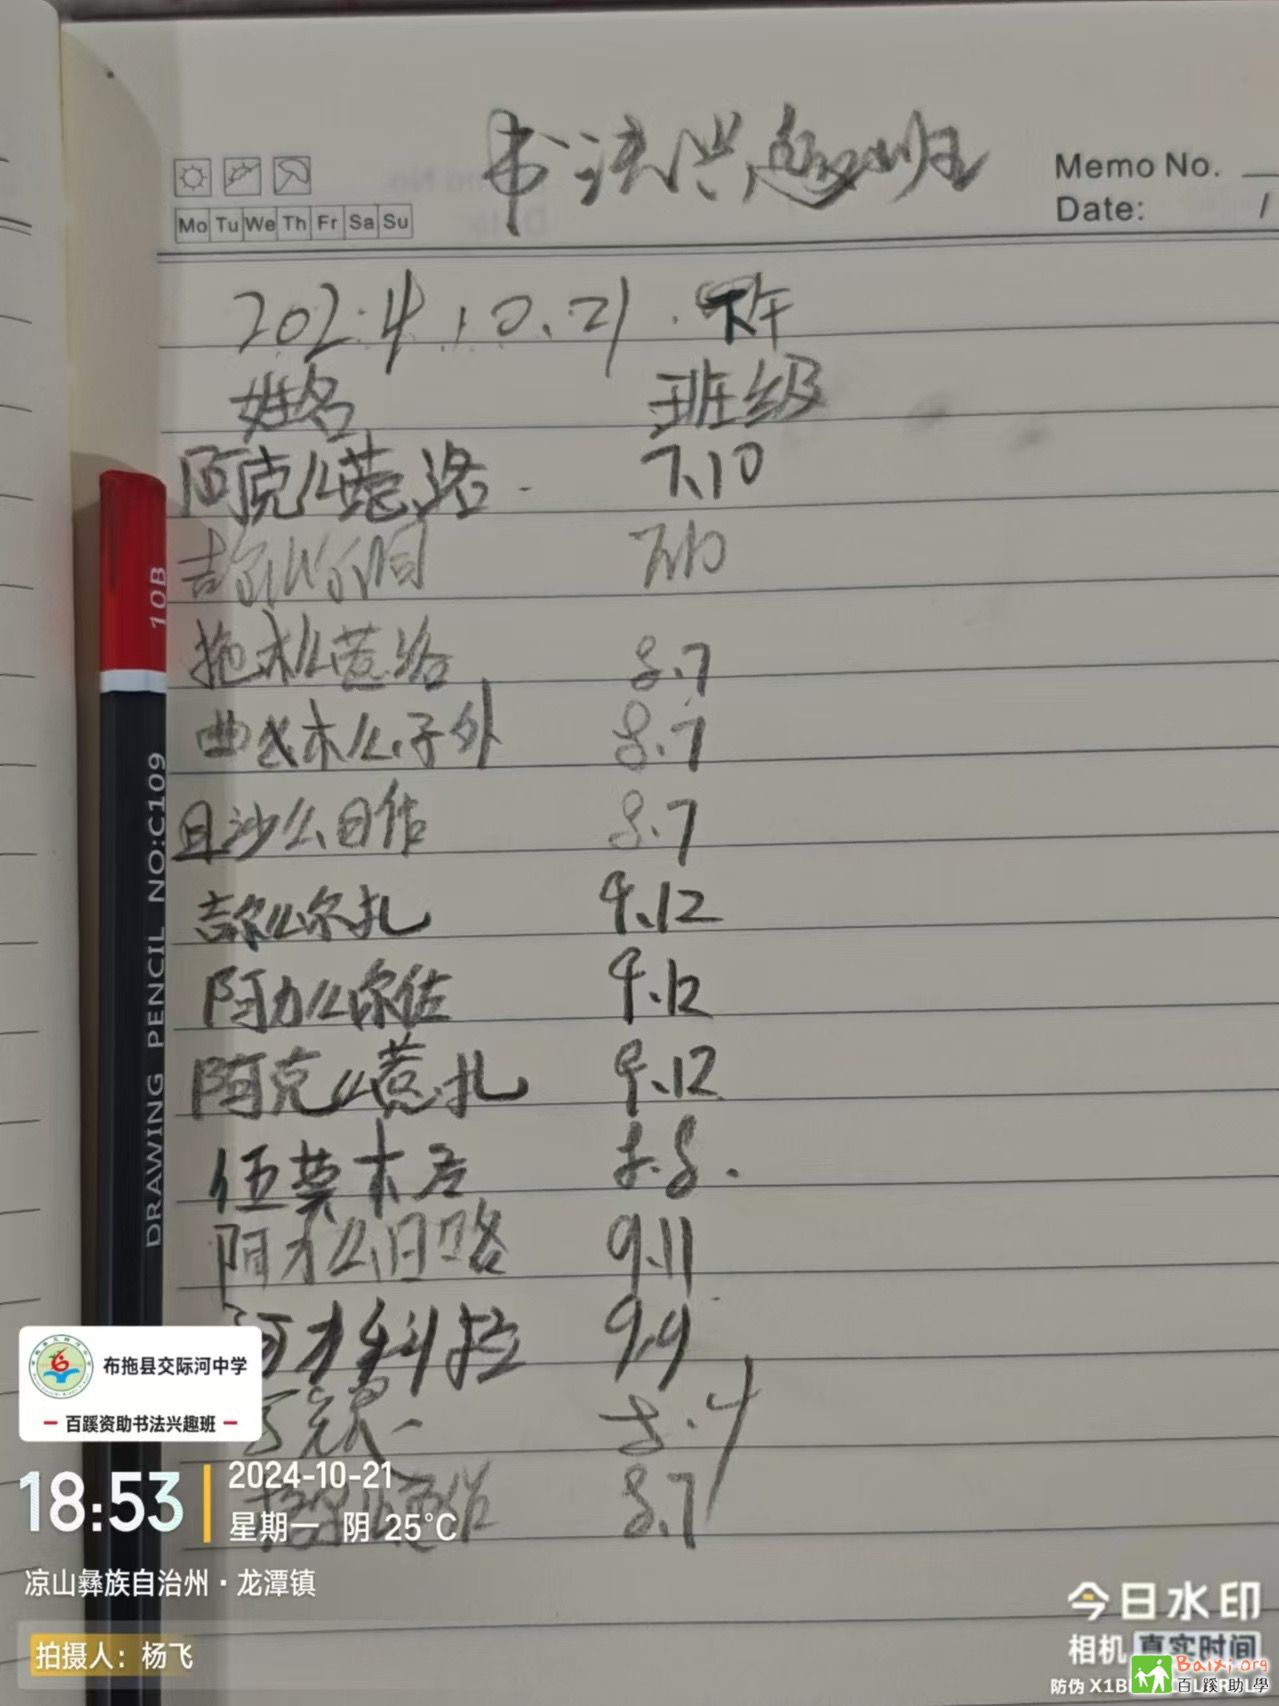 书法兴趣班
Memo No.
Mo Tu We Th Fr Sa Su
Date: /
2024.10.21. 下午
姓名 班级
阿克么惹洛 7.10
吉尔么尔 7.10
拖木么惹洛 8.7
曲弋木么子外 8.7
且沙么日作 8.7
吉尔么尔扎 9.12
阿力么尔佐 9.12
阿克么惹扎 9.12
伍英木 8.8.
阿才么日 9.11
阿才科拉 9.9
8.4
8.7
10B
DRAWING PENCIL NO:C109
布拖县交际河中学
百蹊资助书法兴趣班
18:53
2024-10-21
星期一 阴 25°C
凉山彝族自治州·龙潭镇
拍摄人：杨飞
今日水印
相机 真实时间
防伪 X1B
Baixi.org
百蹊助學